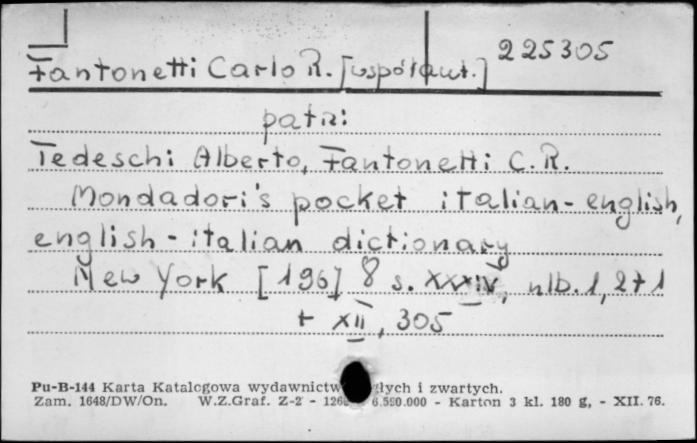 225305
Fantonetti Carlo R. [współaut.]
patrz:
Tedeschi Alberto, Fantonetti C. R.
Mondadori's pocket italian-english,
english-italian dictionary
New York [196] 8 s. XXXIV, nlb. 1, 271
+ XII, 305
Pu-B-144 Karta Katalogowa wydawnictw i zwartych.
Zam. 1648/DW/On. W.Z.Graf. Z-2 - 6.550.000 - Karton 3 kl. 180 g, - XII. 76.